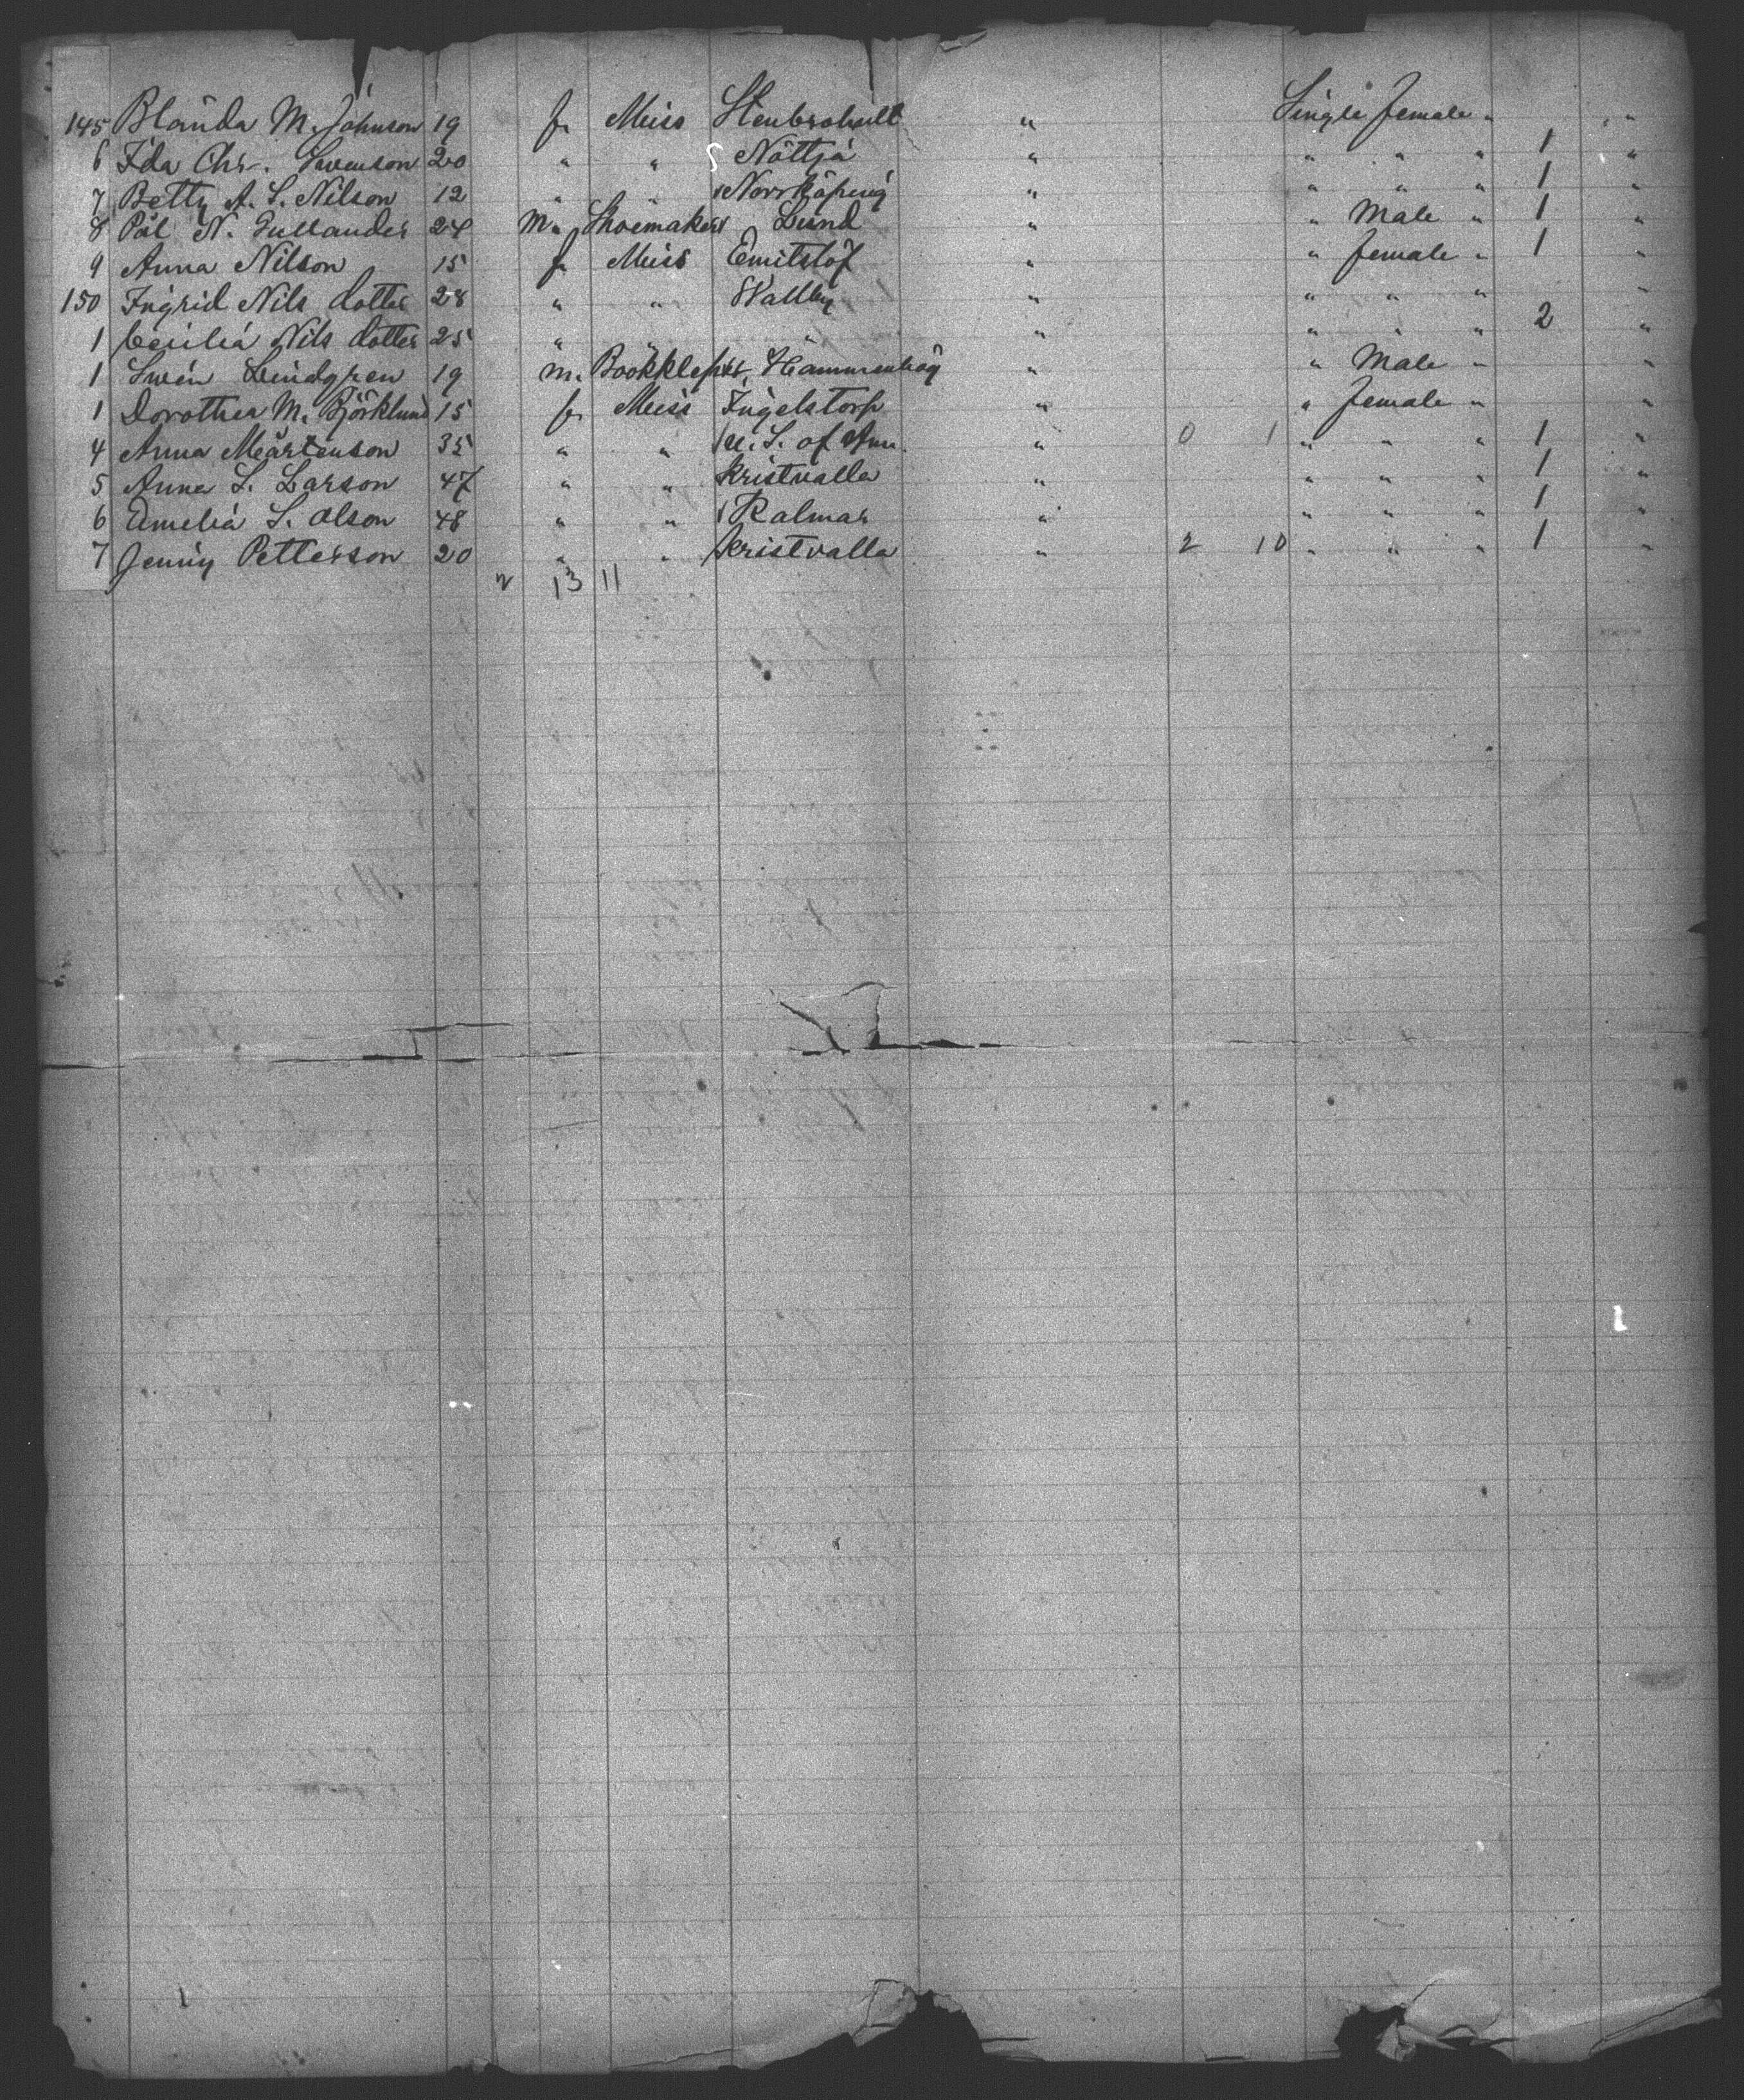 145 Blanda M. Johnson 19 f. Miss Stenbrohult " Single female " "
6 Ida Chr. Svenson 20 " " Nöttja " " " " 1 "
7 Betty A. S. Nilson 12 " Norrköping " " " " 1 "
8 Pål N. Gullander 24 M. Shoemaker Lund " " Male " 1 "
9 Anna Nilson 15 f Miss Emitslöf " " female " 1 "
150 Ingrid Nils dotter 28 " " Wallby " " " " "
1 Cecilia Nils dotter 25 " " " " " " 2 "
1 Swen Lindgren 19 m. Bookkleper Hammenhög " " Male " "
1 Dorothea M. Björklund 15 f. Miss Ingelstorp " " female " "
4 Anna Mårtenson 35 " " U. S. of Am. " 0 1 " " " 1 "
5 Anna S. Larson 47 " " Kristvalla " " " " 1 "
6 Emelia S. Olson 48 " " Kalmar " " " " 1 "
7 Jenny Petterson 20 " " Kristvalla " 2 10 " " " 1 "
13 11